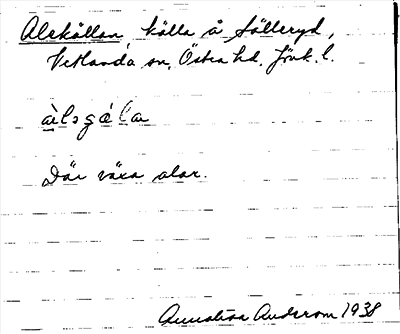 Alekällan källa å Sälleryd,
Vetlanda sn. Östra hd. Jönk. l.
Där växa alar.
Andersson 1938